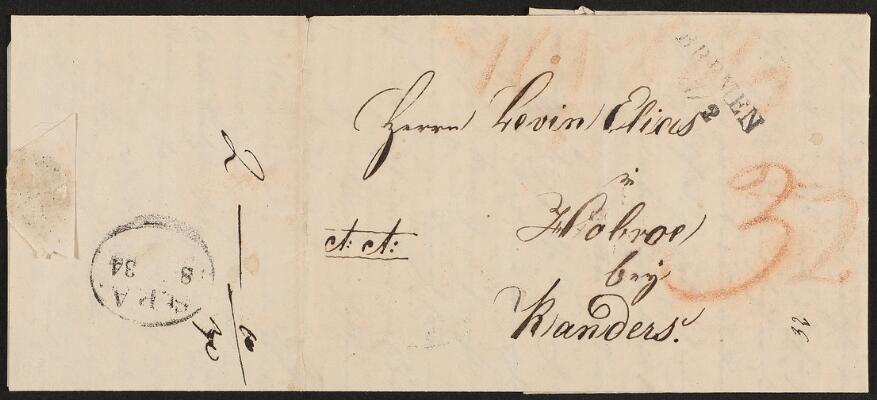 BREMEN
2
Herrn Levin Elias
in
Hobroe
bey
Randers.
ct: ct:
32
32
P A
8
34